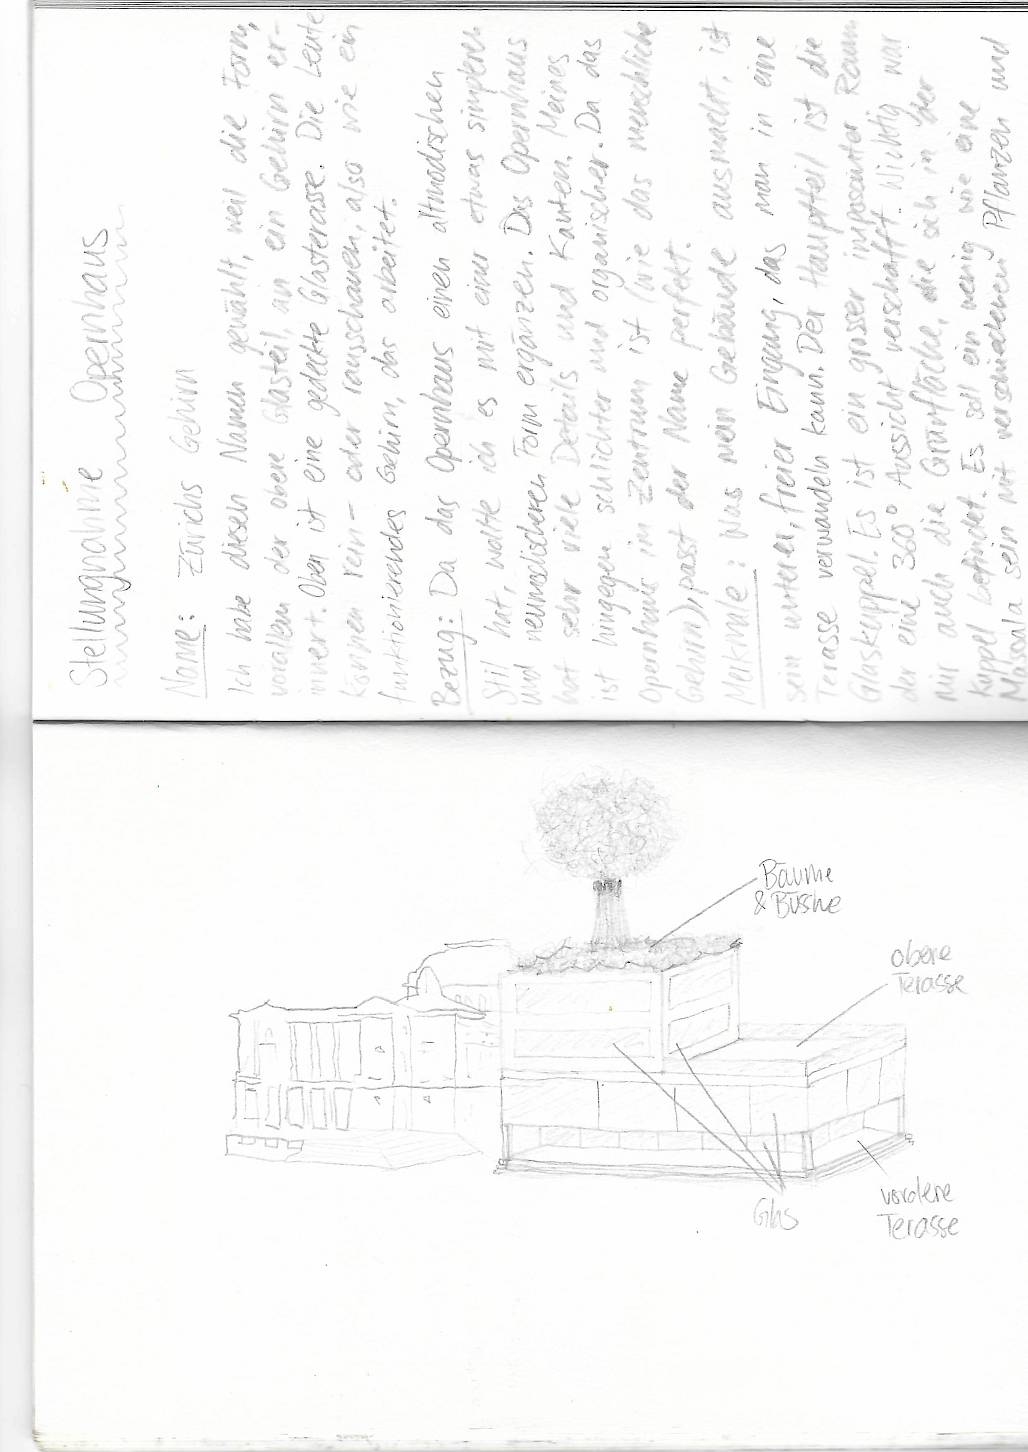 Stellungnahme Opernhaus
Name: Zürichs Gehirn
Ich habe diesen Namen gewählt, weil die Form,
vorallem der obere Glasteil, an ein Gehirn er-
innert. Oben ist eine gedeckte Glasterasse. Die Leute
können rein- oder rausschauen, also wie ein
funktionierendes Gehirn, das arbeitet.
Bezug: Da das Opernhaus einen altmodischen
Stil hat, wollte ich es mit einer etwas simpleren
und neumodischeren Form ergänzen. Das Opernhaus
hat sehr viele Details und Kanten. Meines
ist hingegen schlichter und organischer. Da das
Opernhaus im Zentrum ist (wie das menschliche
Gehirn), passt der Name perfekt.
Merkmale: Was mein Gebäude ausmacht, ist
sein unterer, freier Eingang, das man in eine
Terasse verwandeln kann. Der Hauptteil ist die
Glaskuppel. Es ist ein grosser imposanter Raum
der eine 360° Aussicht verschafft. Wichtig war
mir auch die Grünfläche, die sich in der
Kuppel befindet. Es soll ein wenig wie eine
Masoala sein mit verschiedenen Pflanzen und
Bäume
& Büshe
obere
Terasse
Glas
vordere
Terasse